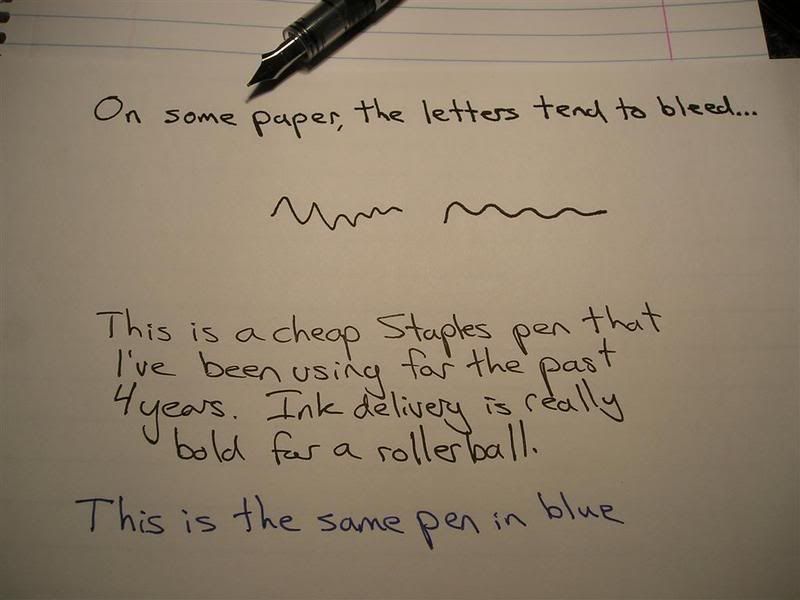 On some paper, the letters tend to bleed...
This is a cheap Staples pen that
I've been using for the past
4 years. Ink delivery is really
bold for a rollerball.
This is the same pen in blue